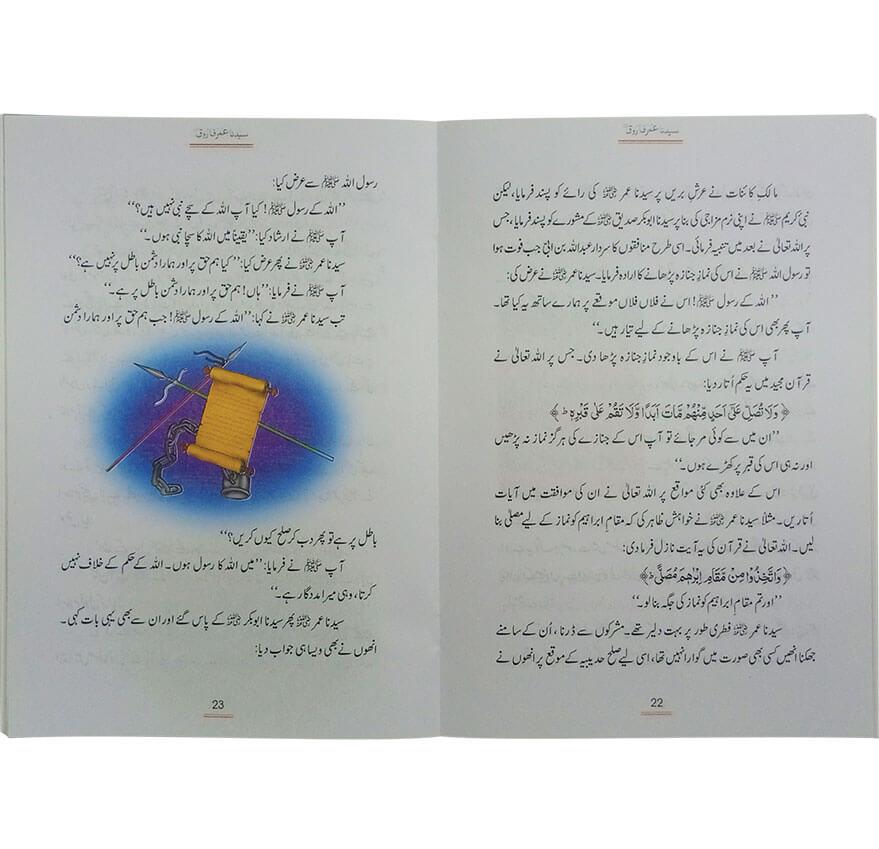 سیدنا عمر فاروق
مالکِ کائنات نے عرشِ بریں پر سیدنا عمر رضی اللہ عنہ کی رائے کو پسند فرمایا، لیکن
نبیٔ کریم ﷺ نے اپنی نرم مزاجی کی بنا پر سیدنا ابوبکر صدیق رضی اللہ عنہ کے مشورے کو پسند فرمایا، جس
پر اللہ تعالیٰ نے بعد میں تنبیہ فرمائی۔ اسی طرح منافقوں کا سردار عبداللہ بن ابی جب فوت ہوا
تو رسول اللہ ﷺ نے اس کی نمازِ جنازہ پڑھانے کا ارادہ فرمایا۔ سیدنا عمر رضی اللہ عنہ نے عرض کی:
’’اللہ کے رسول ﷺ! اس نے فلاں فلاں موقعے پر ہمارے ساتھ یہ کیا تھا۔
آپ پھر بھی اس کی نمازِ جنازہ پڑھانے کے لیے تیار ہیں۔‘‘
آپ ﷺ نے اس کے باوجود نمازِ جنازہ پڑھا دی۔ جس پر اللہ تعالیٰ نے
قرآن مجید میں یہ حکم اُتار دیا:
﴿وَلَا تُصَلِّ عَلٰۤى اَحَدٍ مِّنْهُمْ مَّاتَ اَبَدًا وَّلَا تَقُمْ عَلٰى قَبْرِهٖ ط﴾
’’ان میں سے کوئی مر جائے تو آپ اس کے جنازے کی ہرگز نماز نہ پڑھیں
اور نہ ہی اس کی قبر پر کھڑے ہوں۔‘‘
اس کے علاوہ بھی کئی مواقع پر اللہ تعالیٰ نے ان کی موافقت میں آیات
اُتاریں۔ مثلاً سیدنا عمر رضی اللہ عنہ نے خواہش ظاہر کی کہ مقامِ ابراہیم کو نماز کے لیے مصلیٰ بنا
لیں۔ اللہ تعالیٰ نے قرآن کی یہ آیت نازل فرما دی:
﴿وَاتَّخِذُوْا مِنْ مَّقَامِ اِبْرٰهٖمَ مُصَلًّى ط﴾
’’اور تم مقامِ ابراہیم کو نماز کی جگہ بنا لو۔‘‘
سیدنا عمر رضی اللہ عنہ فطری طور پر بہت دلیر تھے۔ مشرکوں سے ڈرنا، اُن کے سامنے
جھکنا انھیں کسی بھی صورت میں گوارا نہیں تھا، اسی لیے صلح حدیبیہ کے موقع پر انھوں نے
22
سیدنا عمر فاروق
رسول اللہ ﷺ سے عرض کیا:
’’اللہ کے رسول ﷺ! کیا آپ اللہ کے سچے نبی نہیں ہیں؟‘‘
آپ ﷺ نے ارشاد کیا: ’’یقیناً میں اللہ کا سچا نبی ہوں۔‘‘
سیدنا عمر رضی اللہ عنہ نے پھر عرض کیا: ’’کیا ہم حق پر اور ہمارا دشمن باطل پر نہیں ہے؟‘‘
آپ ﷺ نے فرمایا: ’’ہاں! ہم حق پر اور ہمارا دشمن باطل پر ہے۔‘‘
تب سیدنا عمر رضی اللہ عنہ نے کہا: ’’اللہ کے رسول ﷺ! جب ہم حق پر اور ہمارا دشمن
باطل پر ہے تو پھر دب کر صلح کیوں کریں؟‘‘
آپ ﷺ نے فرمایا: ’’میں اللہ کا رسول ہوں۔ اللہ کے حکم کے خلاف نہیں
کرتا، وہی میرا مددگار ہے۔‘‘
سیدنا عمر رضی اللہ عنہ پھر سیدنا ابوبکر رضی اللہ عنہ کے پاس گئے اور ان سے بھی یہی بات کہی۔
انھوں نے بھی ویسا ہی جواب دیا:
23